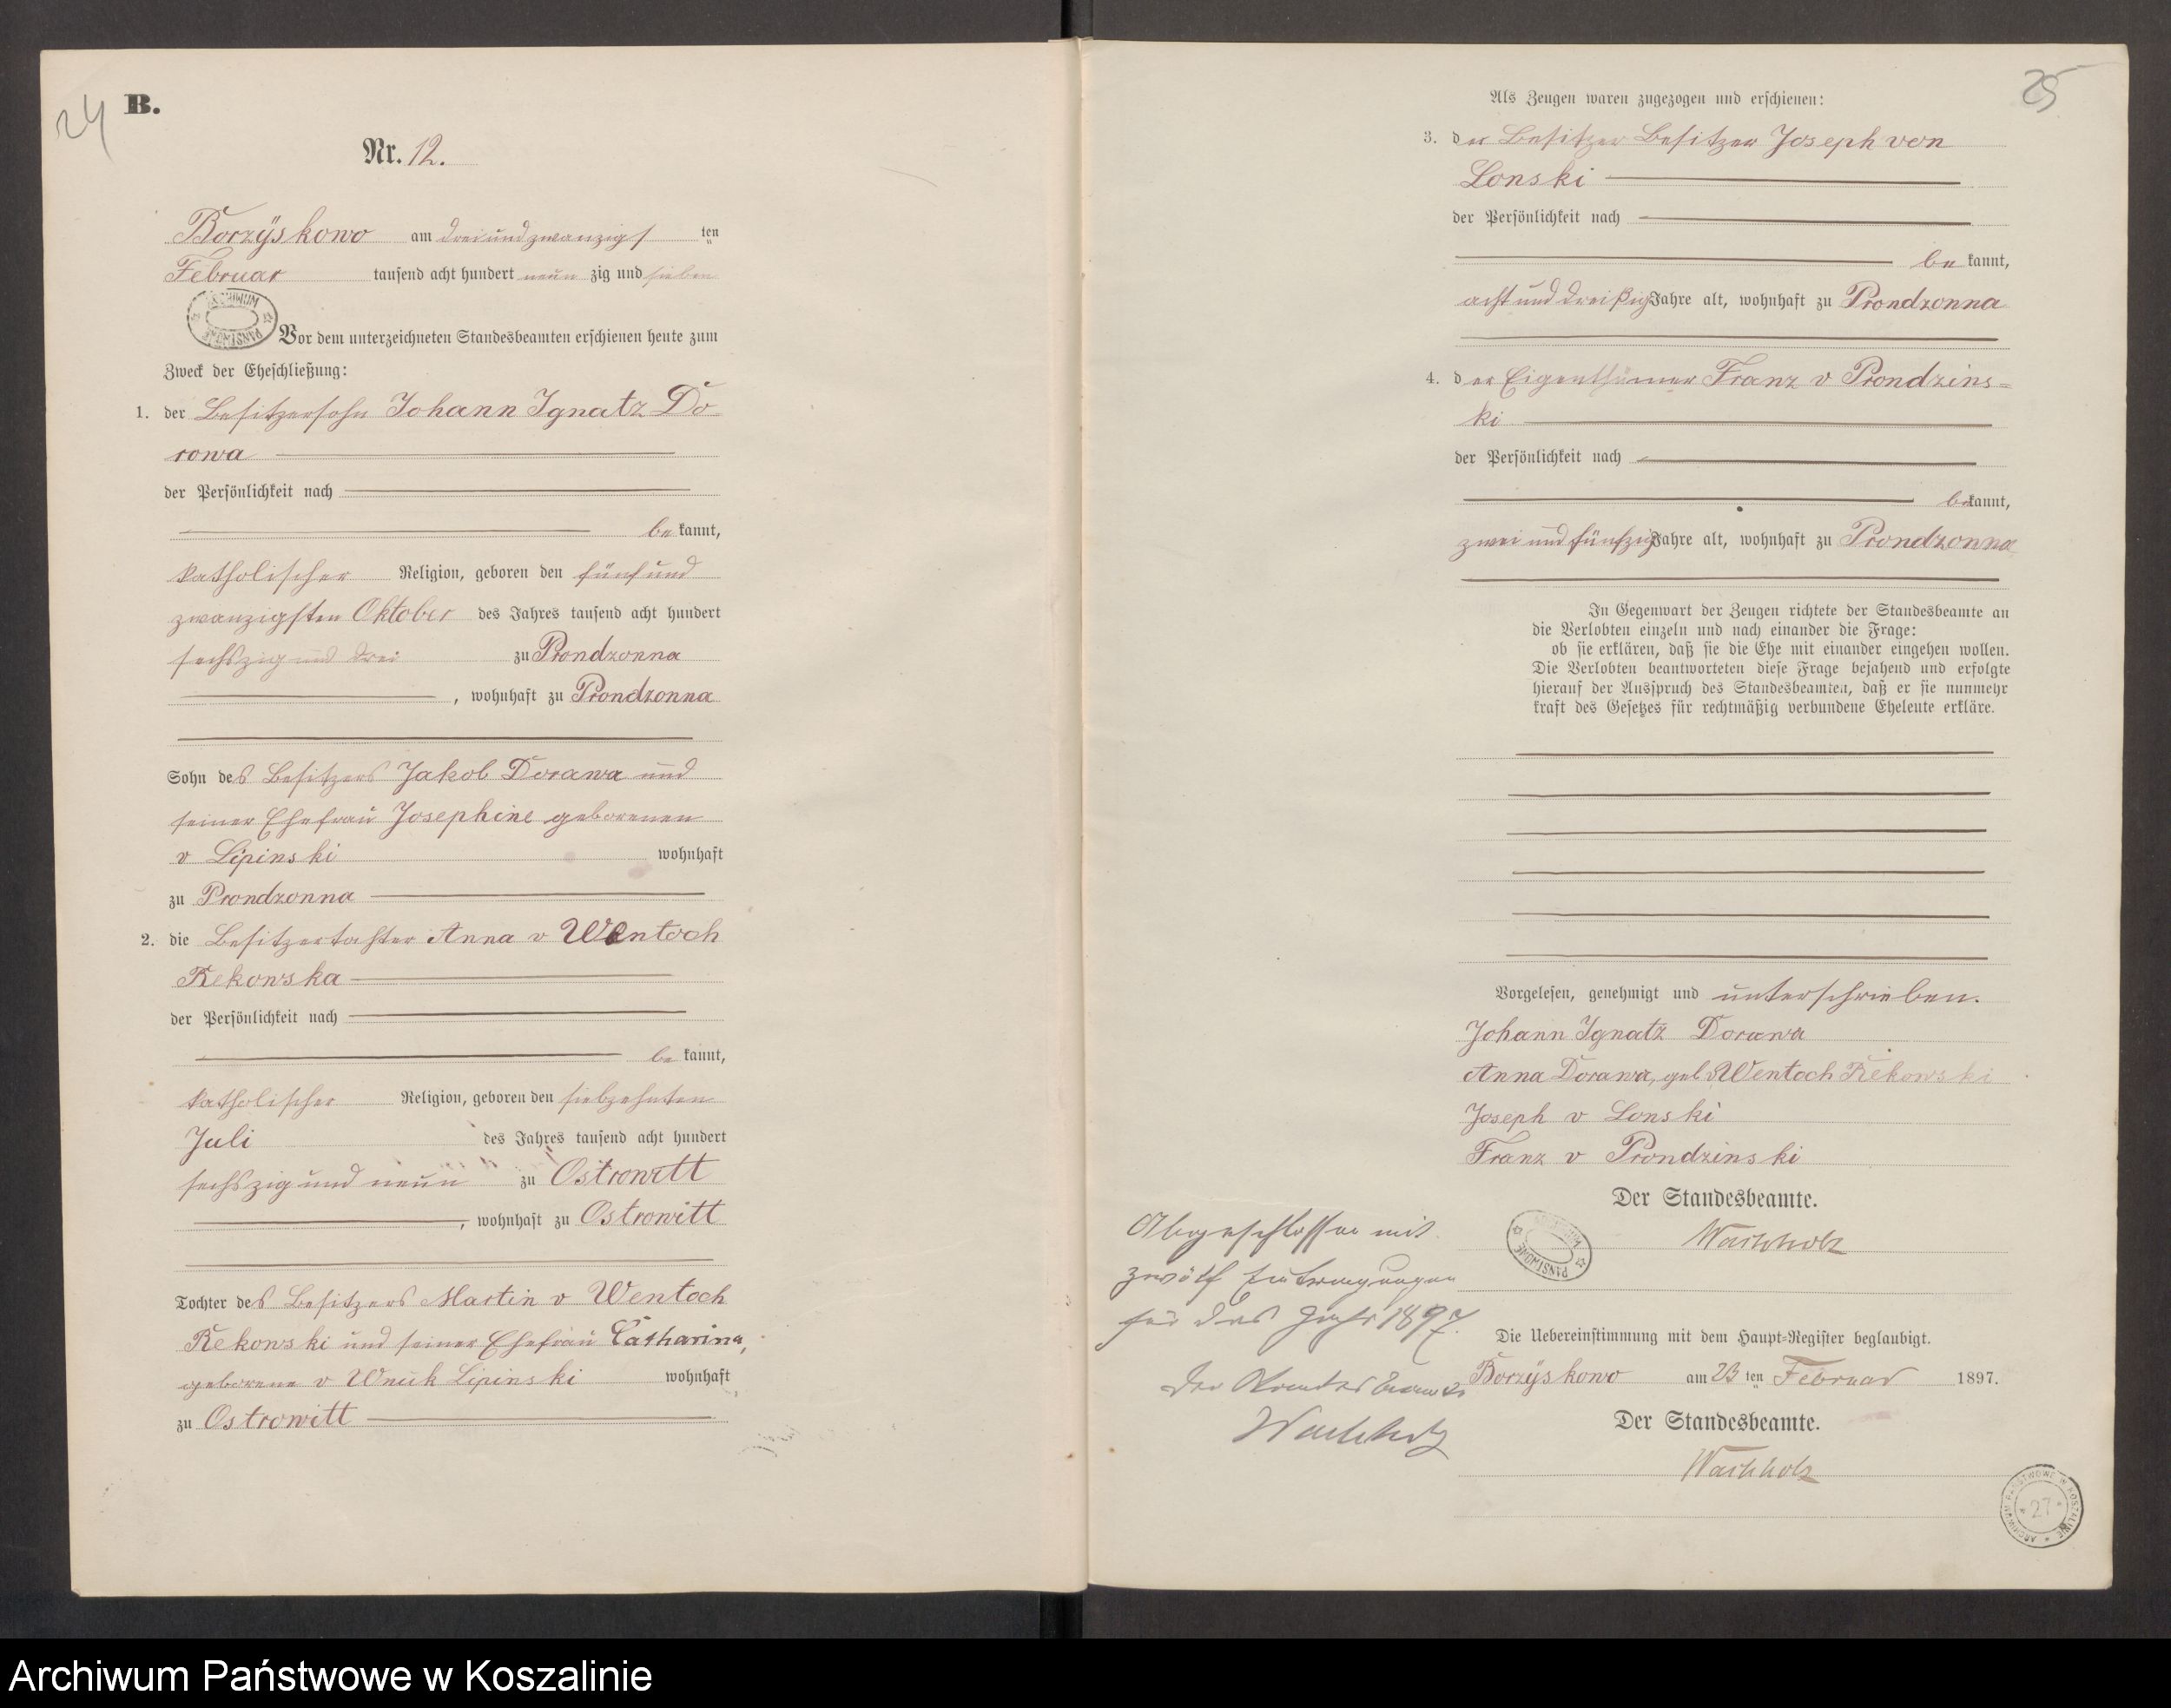 24
B.
Nr. 12.
Borzÿskowo am dreiundzwanzigsten
Februar tausend acht hundert neunzig und sieben
ARCHIWUM PAŃSTWOWE
Vor dem unterzeichneten Standesbeamten erschienen heute zum
Zweck der Eheschließung:
1. der Besitzersohn Johann Ignatz Do
rowa
der Persönlichkeit nach
bekannt,
katholischer Religion, geboren den fünf und
zwanzigsten Oktober des Jahres tausend acht hundert
sechszig und drei zu Prondzonna
, wohnhaft zu Prondzonna
Sohn des Besitzers Jakob Dorawa und
seiner Ehefrau Josephine geborenen
v Lipinski wohnhaft
zu Prondzonna
2. die Besitzertochter Anna v Wentoch
Rekowska
der Persönlichkeit nach
bekannt,
katholischer Religion, geboren den siebzehnten
Juli des Jahres tausend acht hundert
sechszig und neun zu Ostrowitt
, wohnhaft zu Ostrowitt
Tochter des Besitzers Martin v Wentoch
Rekowski und seiner Ehefrau Catharina,
geborene v Wnuk Lipinski wohnhaft
zu Ostrowitt
25
Als Zeugen waren zugezogen und erschienen:
3. der Besitzer Besitzer Joseph von
Lonski
der Persönlichkeit nach
bekannt,
acht und dreißig Jahre alt, wohnhaft zu Prondzonna
4. der Eigenthümer Franz v Prondzins=
ki
der Persönlichkeit nach
bekannt,
zwei und fünfzig Jahre alt, wohnhaft zu Prondzonna
In Gegenwart der Zeugen richtete der Standesbeamte an
die Verlobten einzeln und nach einander die Frage:
ob sie erklären, daß sie die Ehe mit einander eingehen wollen.
Die Verlobten beantworteten diese Frage bejahend und erfolgte
hierauf der Ausspruch des Standesbeamten, daß er sie nunmehr
kraft des Gesetzes für rechtmäßig verbundene Eheleute erkläre.
Vorgelesen, genehmigt und unterschrieben.
Johann Ignatz Dorawa
Anna Dorawa, geb v Wentoch Rekowski
Joseph v Lonski
Franz v Prondzinski
Der Standesbeamte.
Wachholz
ARCHIWUM PAŃSTWOWE
Abgeschlossen mit
zwölf Eintragungen
für das Jahr 1897.
Der Standesbeamte
Wachholz
Die Uebereinstimmung mit dem Haupt=Register beglaubigt.
Borzÿskowo am 23 ten Februar 1897.
Der Standesbeamte.
Wachholz
ARCHIWUM PAŃSTWOWE W KOSZALINIE
27
Archiwum Państwowe w Koszalinie